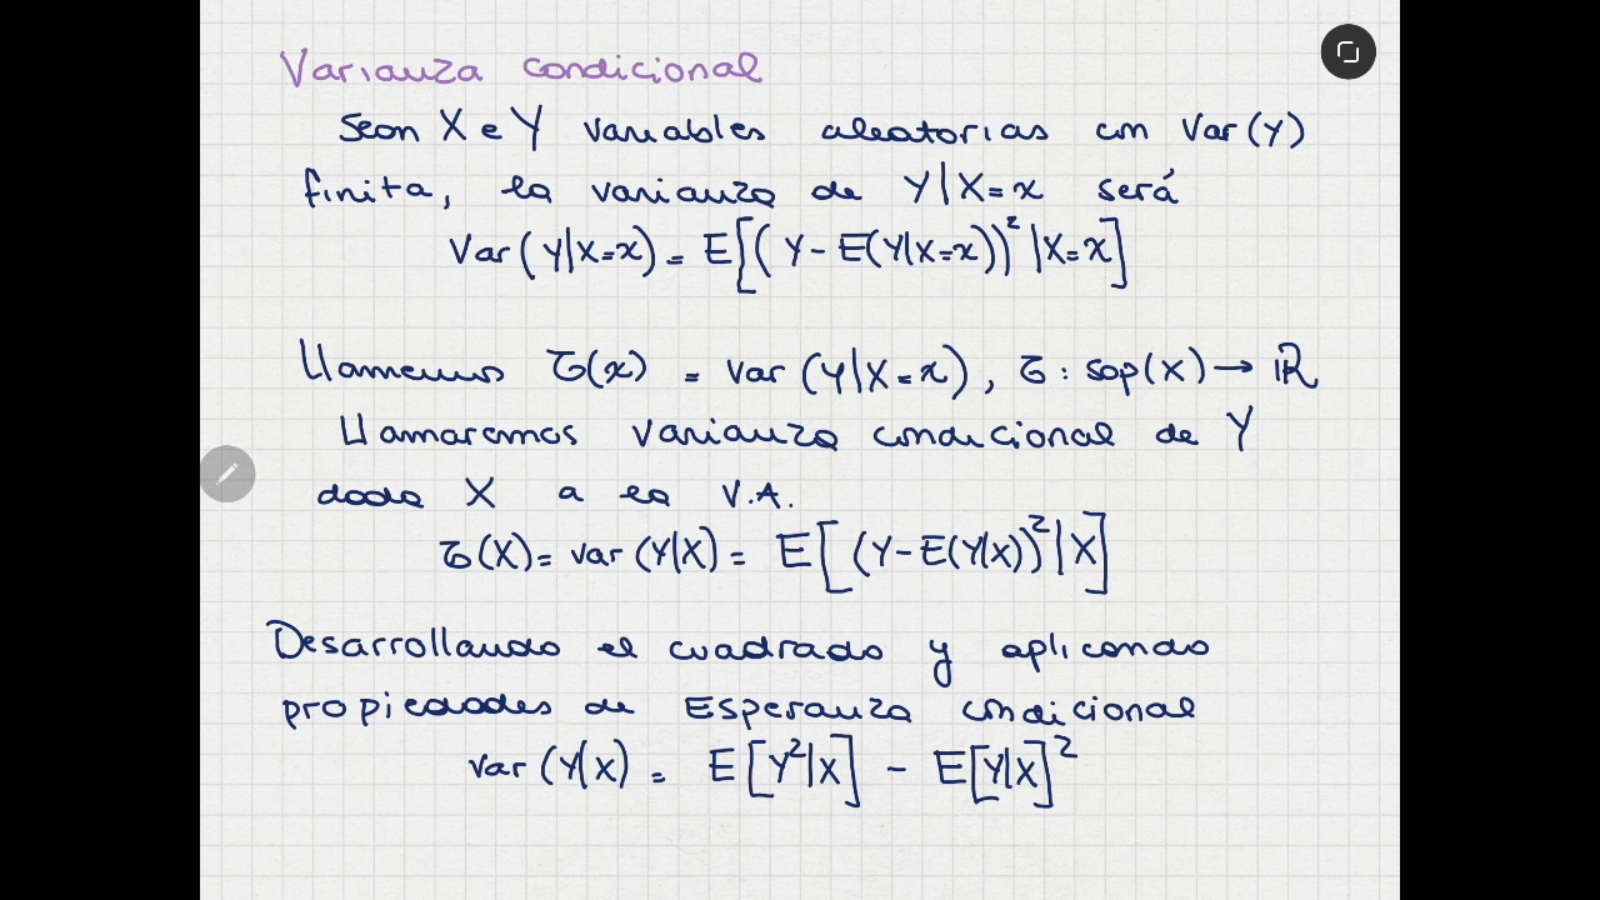 Varianza condicional
Sean X e Y variables aleatorias con Var(Y)
finita, la varianza de Y|X=x será
Var(Y|X=x) = E[(Y-E(Y|X=x))²|X=x]
Llamemos τ(x) = var(Y|X=x), τ: sop(X)→ℝ
Llamaremos varianza condicional de Y
dada X a la V.A.
τ(X) = var(Y|X) = E[(Y-E(Y|X))²|X]
Desarrollando el cuadrado y aplicando
propiedades de Esperanza condicional
var(Y|X) = E[Y²|X] - E[Y|X]²